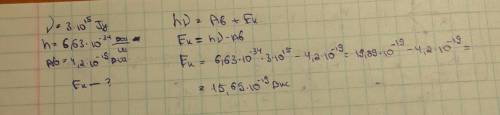 ν = 3·10¹⁵ Гц
h = 6,63·10⁻³⁴
Aв = 4,2·10⁻¹⁹ Дж
Eк — ?
hν = Aв + Eк
Eк = hν - Aв
Eк = 6,63·10⁻³⁴ · 3·10¹⁵ - 4,2·10⁻¹⁹ = 19,89·10⁻¹⁹ - 4,2·10⁻¹⁹ =
= 15,69·10⁻¹⁹ Дж